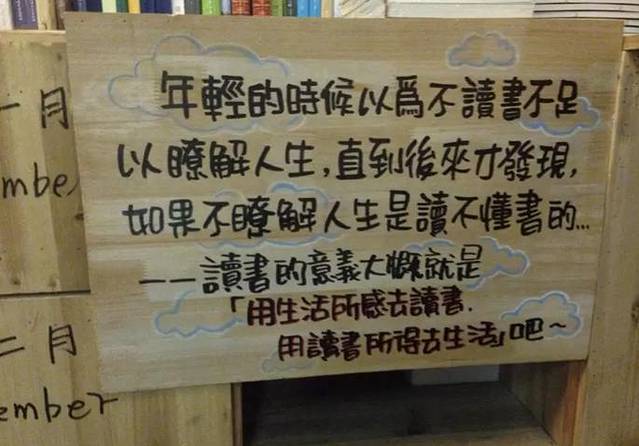 年輕的時候以爲不讀書不足
以瞭解人生，直到後來才發現，
如果不瞭解人生是讀不懂書的...
——讀書的意義大概就是
「用生活所感去讀書.
用讀書所得去生活」吧~
一月
mber
二月
ember